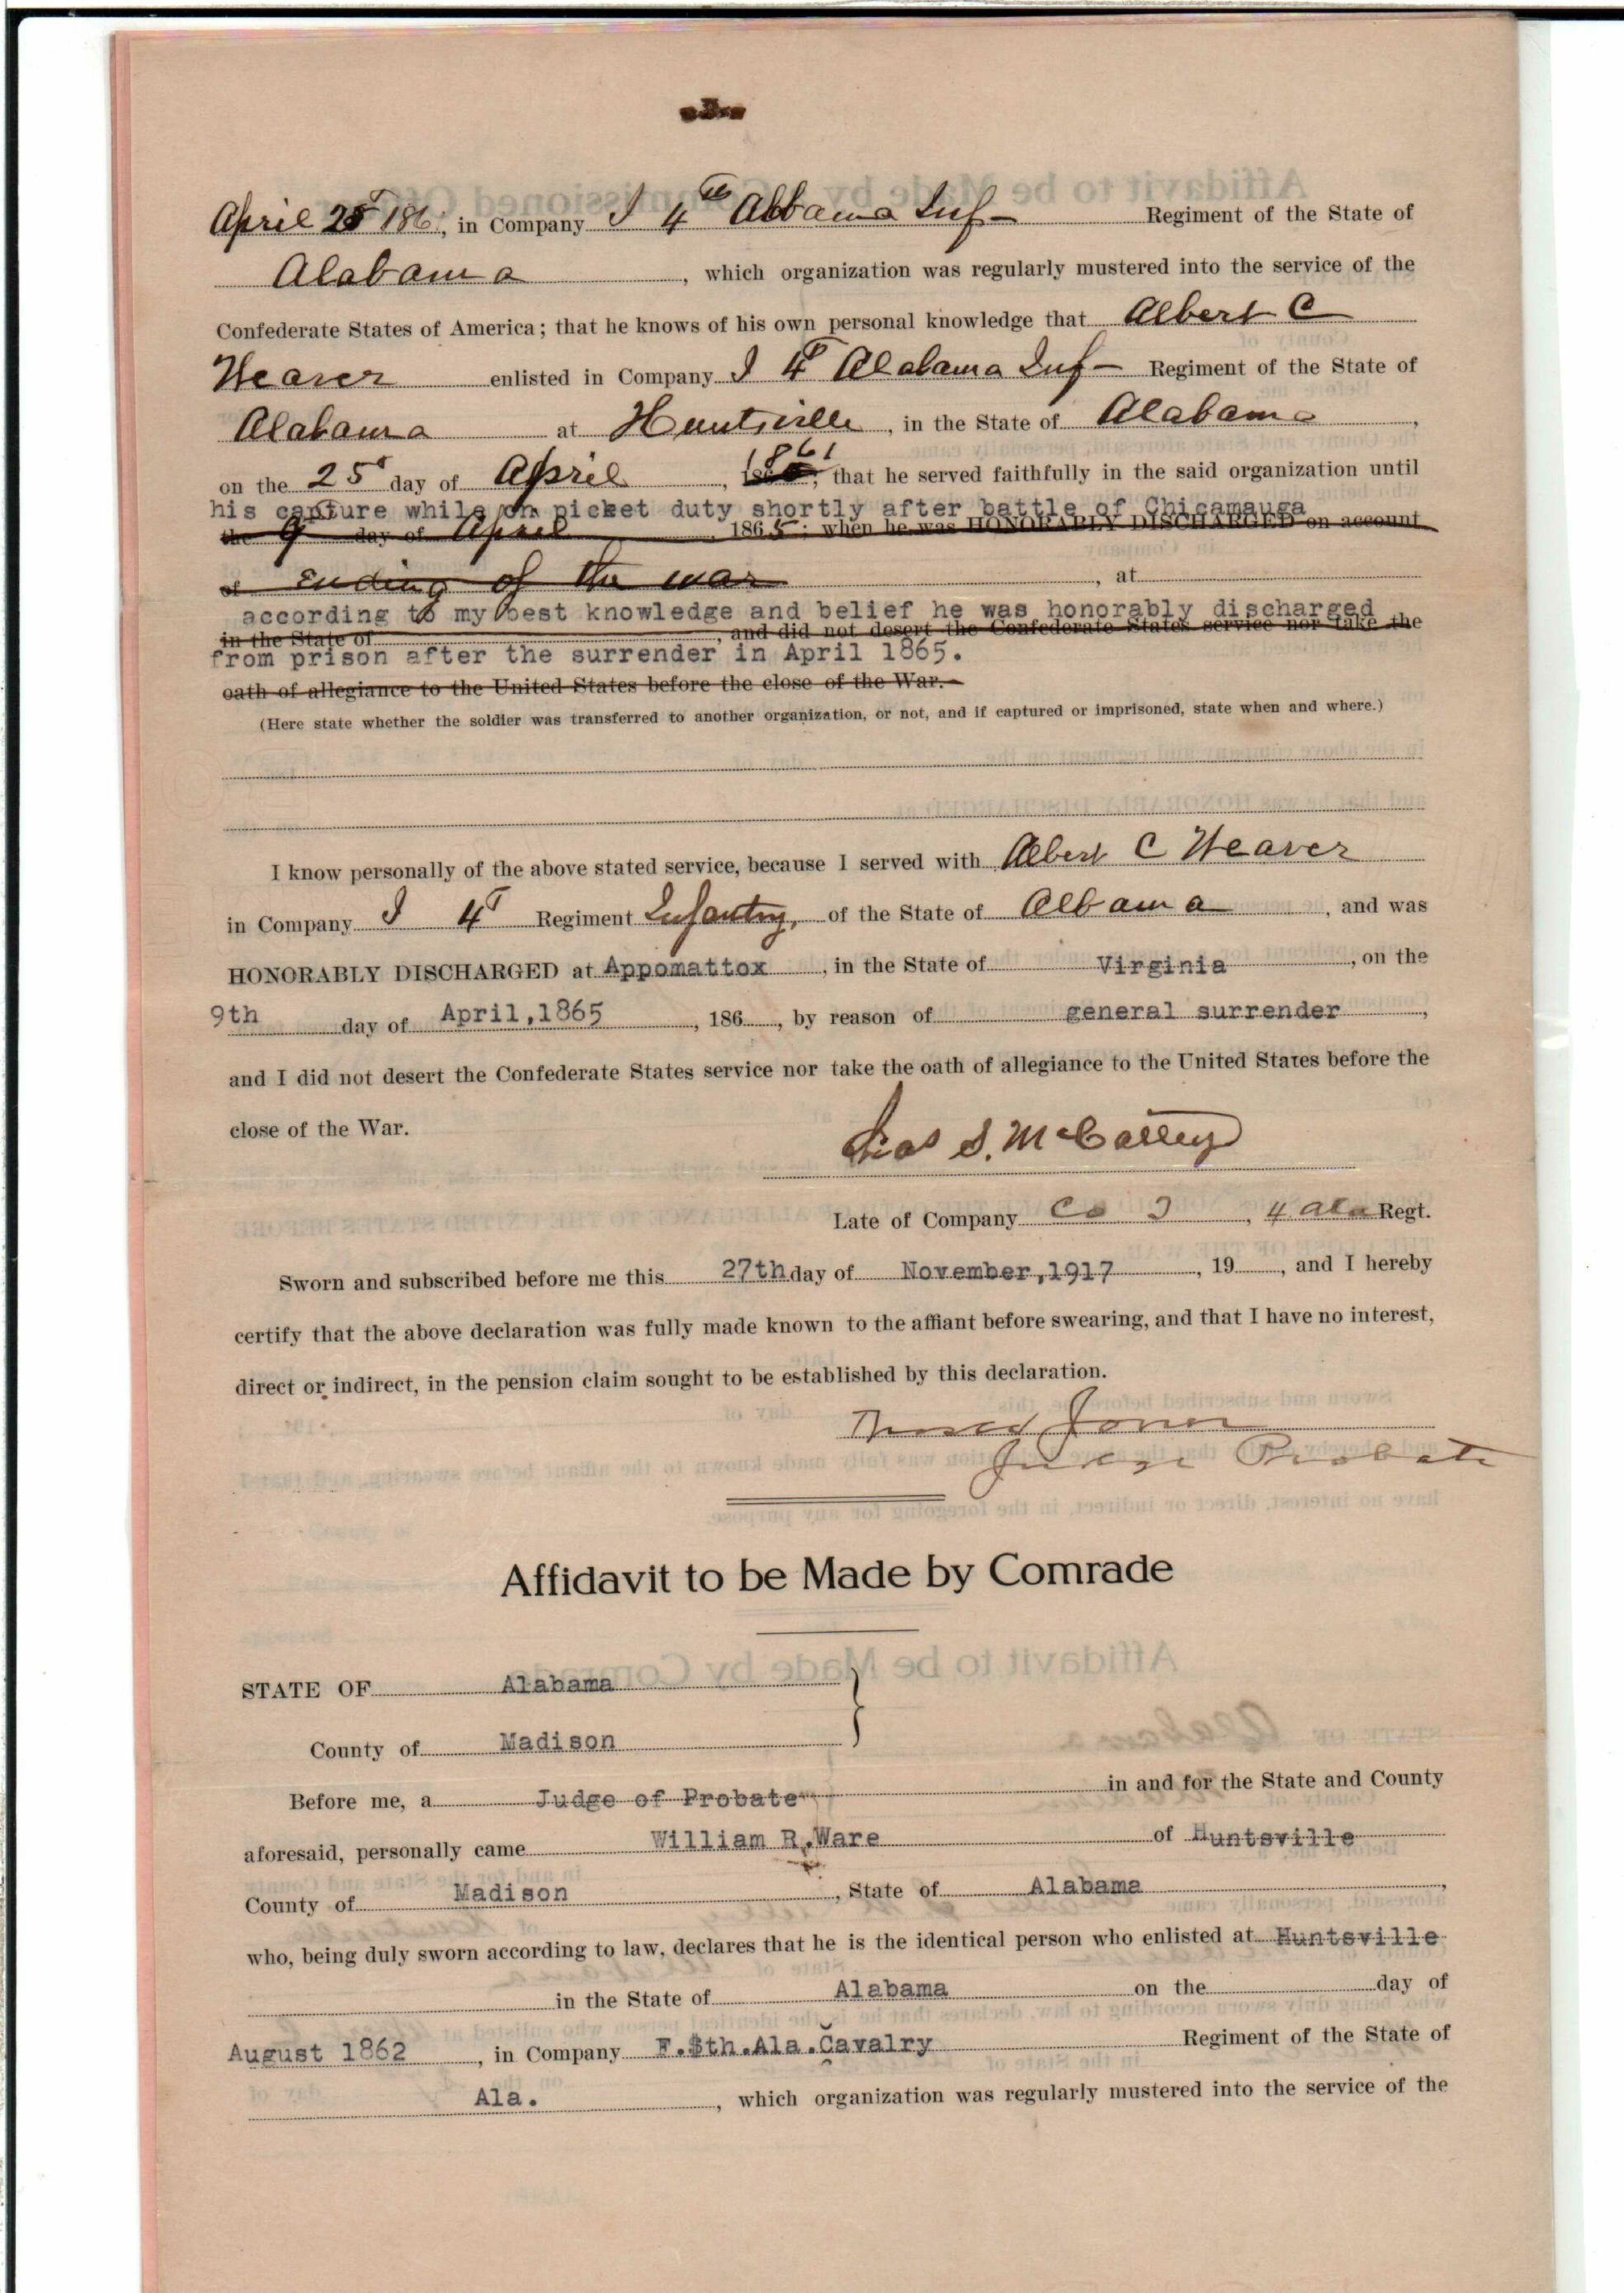 April 25 1861, in Company I 4th Alabama Inf- Regiment of the State of
Alabama, which organization was regularly mustered into the service of the
Confederate States of America; that he knows of his own personal knowledge that Albert C
Weaver enlisted in Company I 4 Alabama Inf- Regiment of the State of
Alabama at Huntsville, in the State of Alabama,
on the 25 day of April, 1861, that he served faithfully in the said organization until
his capture while on picket duty shortly after battle of Chicamauga
the 9 day of April 1865; when he was HONORABLY DISCHARGED on account
of Ending of the war, at
according to my best knowledge and belief he was honorably discharged
in the State of, and did not desert the Confederate States service nor take the
from prison after the surrender in April 1865.
oath of allegiance to the United States before the close of the War.
(Here state whether the soldier was transferred to another organization, or not, and if captured or imprisoned, state when and where.)
I know personally of the above stated service, because I served with Albert C Weaver
in Company I 4 Regiment Infantry, of the State of Albama, and was
HONORABLY DISCHARGED at Appomattox, in the State of Virginia, on the
9th day of April,1865, 186, by reason of general surrender,
and I did not desert the Confederate States service nor take the oath of allegiance to the United States before the
close of the War.
S. McCalley
Late of Company Co I, 4 Ala Regt.
Sworn and subscribed before me this 27th day of November,1917, 19, and I hereby
certify that the above declaration was fully made known to the affiant before swearing, and that I have no interest,
direct or indirect, in the pension claim sought to be established by this declaration.
Jones
Judge Probate
Affidavit to be Made by Comrade
STATE OF Alabama
County of Madison
Before me, a Judge of Probate in and for the State and County
aforesaid, personally came William R. Ware of Huntsville
County of Madison, State of Alabama,
who, being duly sworn according to law, declares that he is the identical person who enlisted at Huntsville
in the State of Alabama on the day of
August 1862, in Company F.$th.Ala.Cavalry Regiment of the State of
Ala., which organization was regularly mustered into the service of the